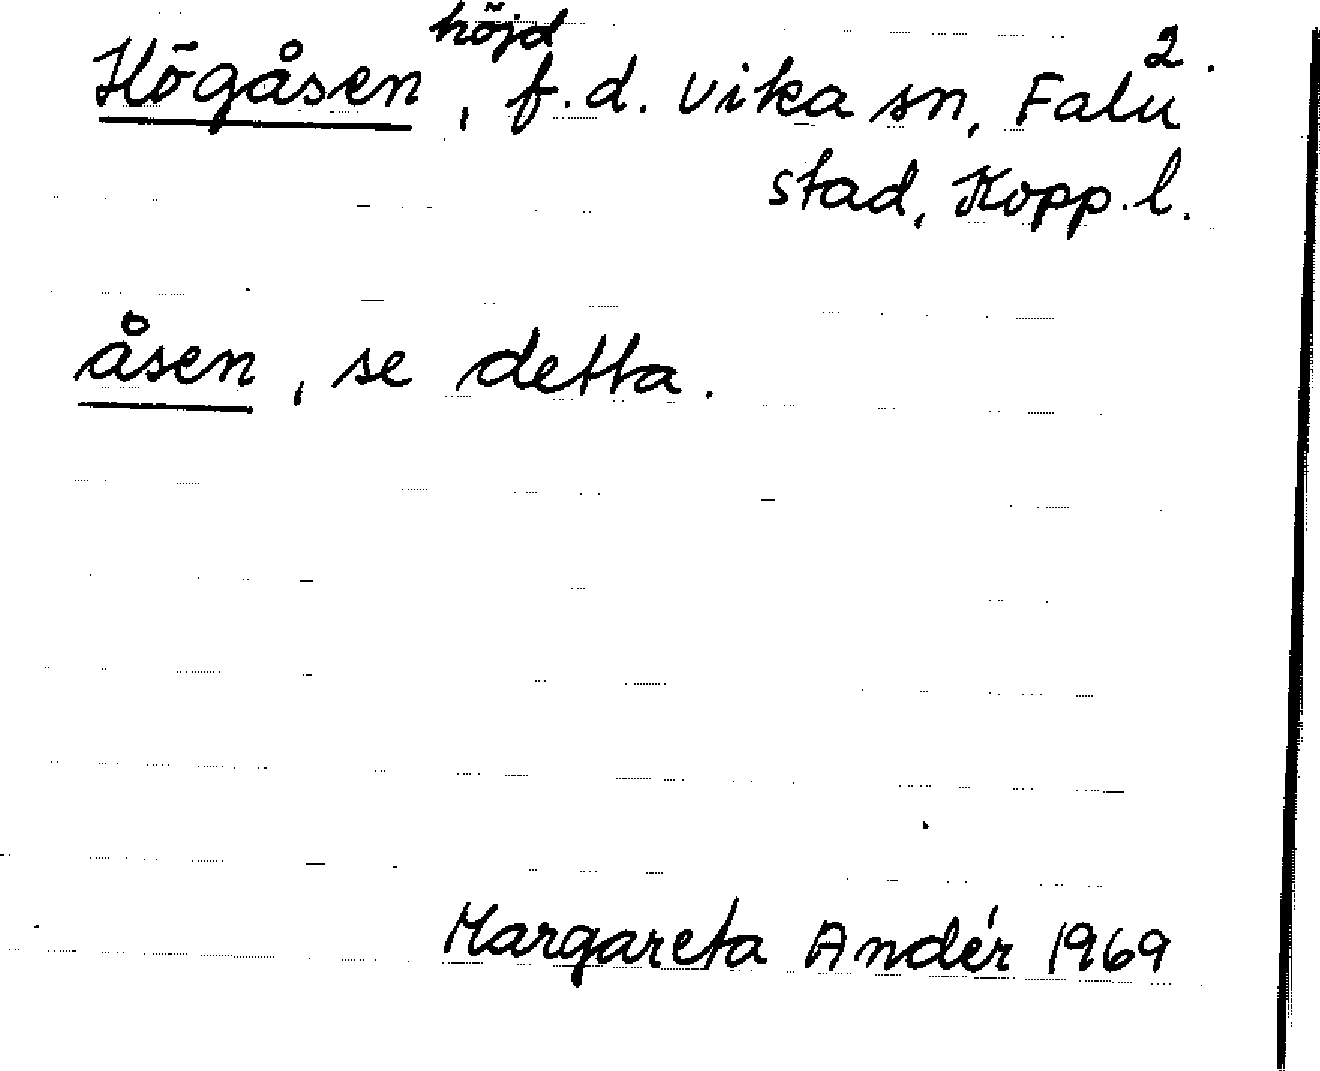 höjd
2.
Högåsen, f.d. Vika sn, Falu
stad, Kopp.l.
åsen, se detta.
Margareta Andér 1969